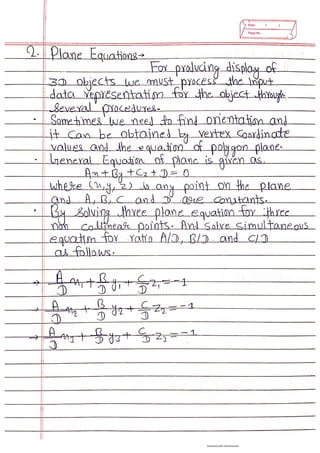 2. Plane Equations →
For producing display of
3D objects we must process the input
data representation for the object through
several procedures.
· Sometimes we need to find orientation and
it can be obtained by vertex coordinate
values and the equation of polygon plane.
· General Equation of plane is given as,
Ax + By + Cz + D = 0
where (x, y, z) is any point on the plane
and A, B, C and D are constants.
· By solving three plane equation for three
non collinear points. And solve simultaneous
equation for ratio A/D, B/D and C/D
as follows.
→ A/D x1 + B/D y1 + C/D z1 = -1
→ A/D x2 + B/D y2 + C/D z2 = -1
→ A/D x3 + B/D y3 + C/D z3 = -1